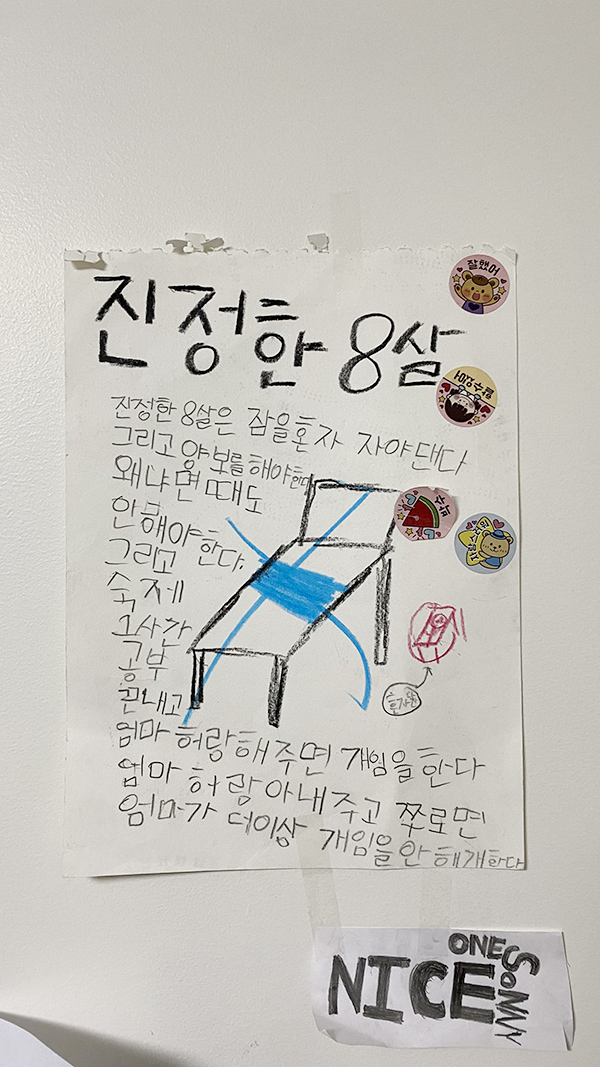 진정한 8살
잘했어
진정한 8살은 잠을혼자 자야댄다
그리고 양보를해야한다
왜냐면 때도
안해야한다.
그리고
숙제
1시간
공부
끈내고
엄마 허랑해주면 개임을한다
엄마 허랑아내주고 쪼르면
엄마가 더이상 개임을안해개한다
NICE ONE SONNY